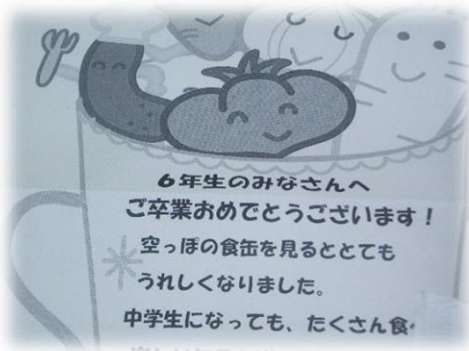 6年生のみなさんへ
ご卒業おめでとうございます！
空っぽの食缶を見るととても
うれしくなりました。
中学生になっても、たくさん食